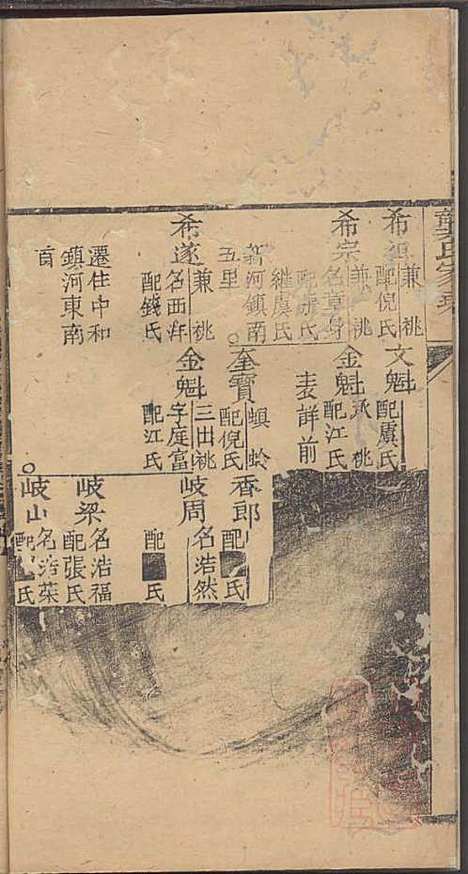 龔氏家乘
希 兼祧 配倪氏
文魁 配虞氏
希宗 兼祧 名 配 氏 繼虞氏
金魁 承祧 配江氏 表詳前
奎寶 螟蛉 配倪氏
香郎 配 氏
河鎮南五里
希遂 兼祧 名西 配錢氏
金魁 三出祧 字庭富 配江氏
岐周 名浩然 配 氏
遷住中和鎮河東南首
岐梁 名浩福 配張氏
岐山 名浩葉 配 氏